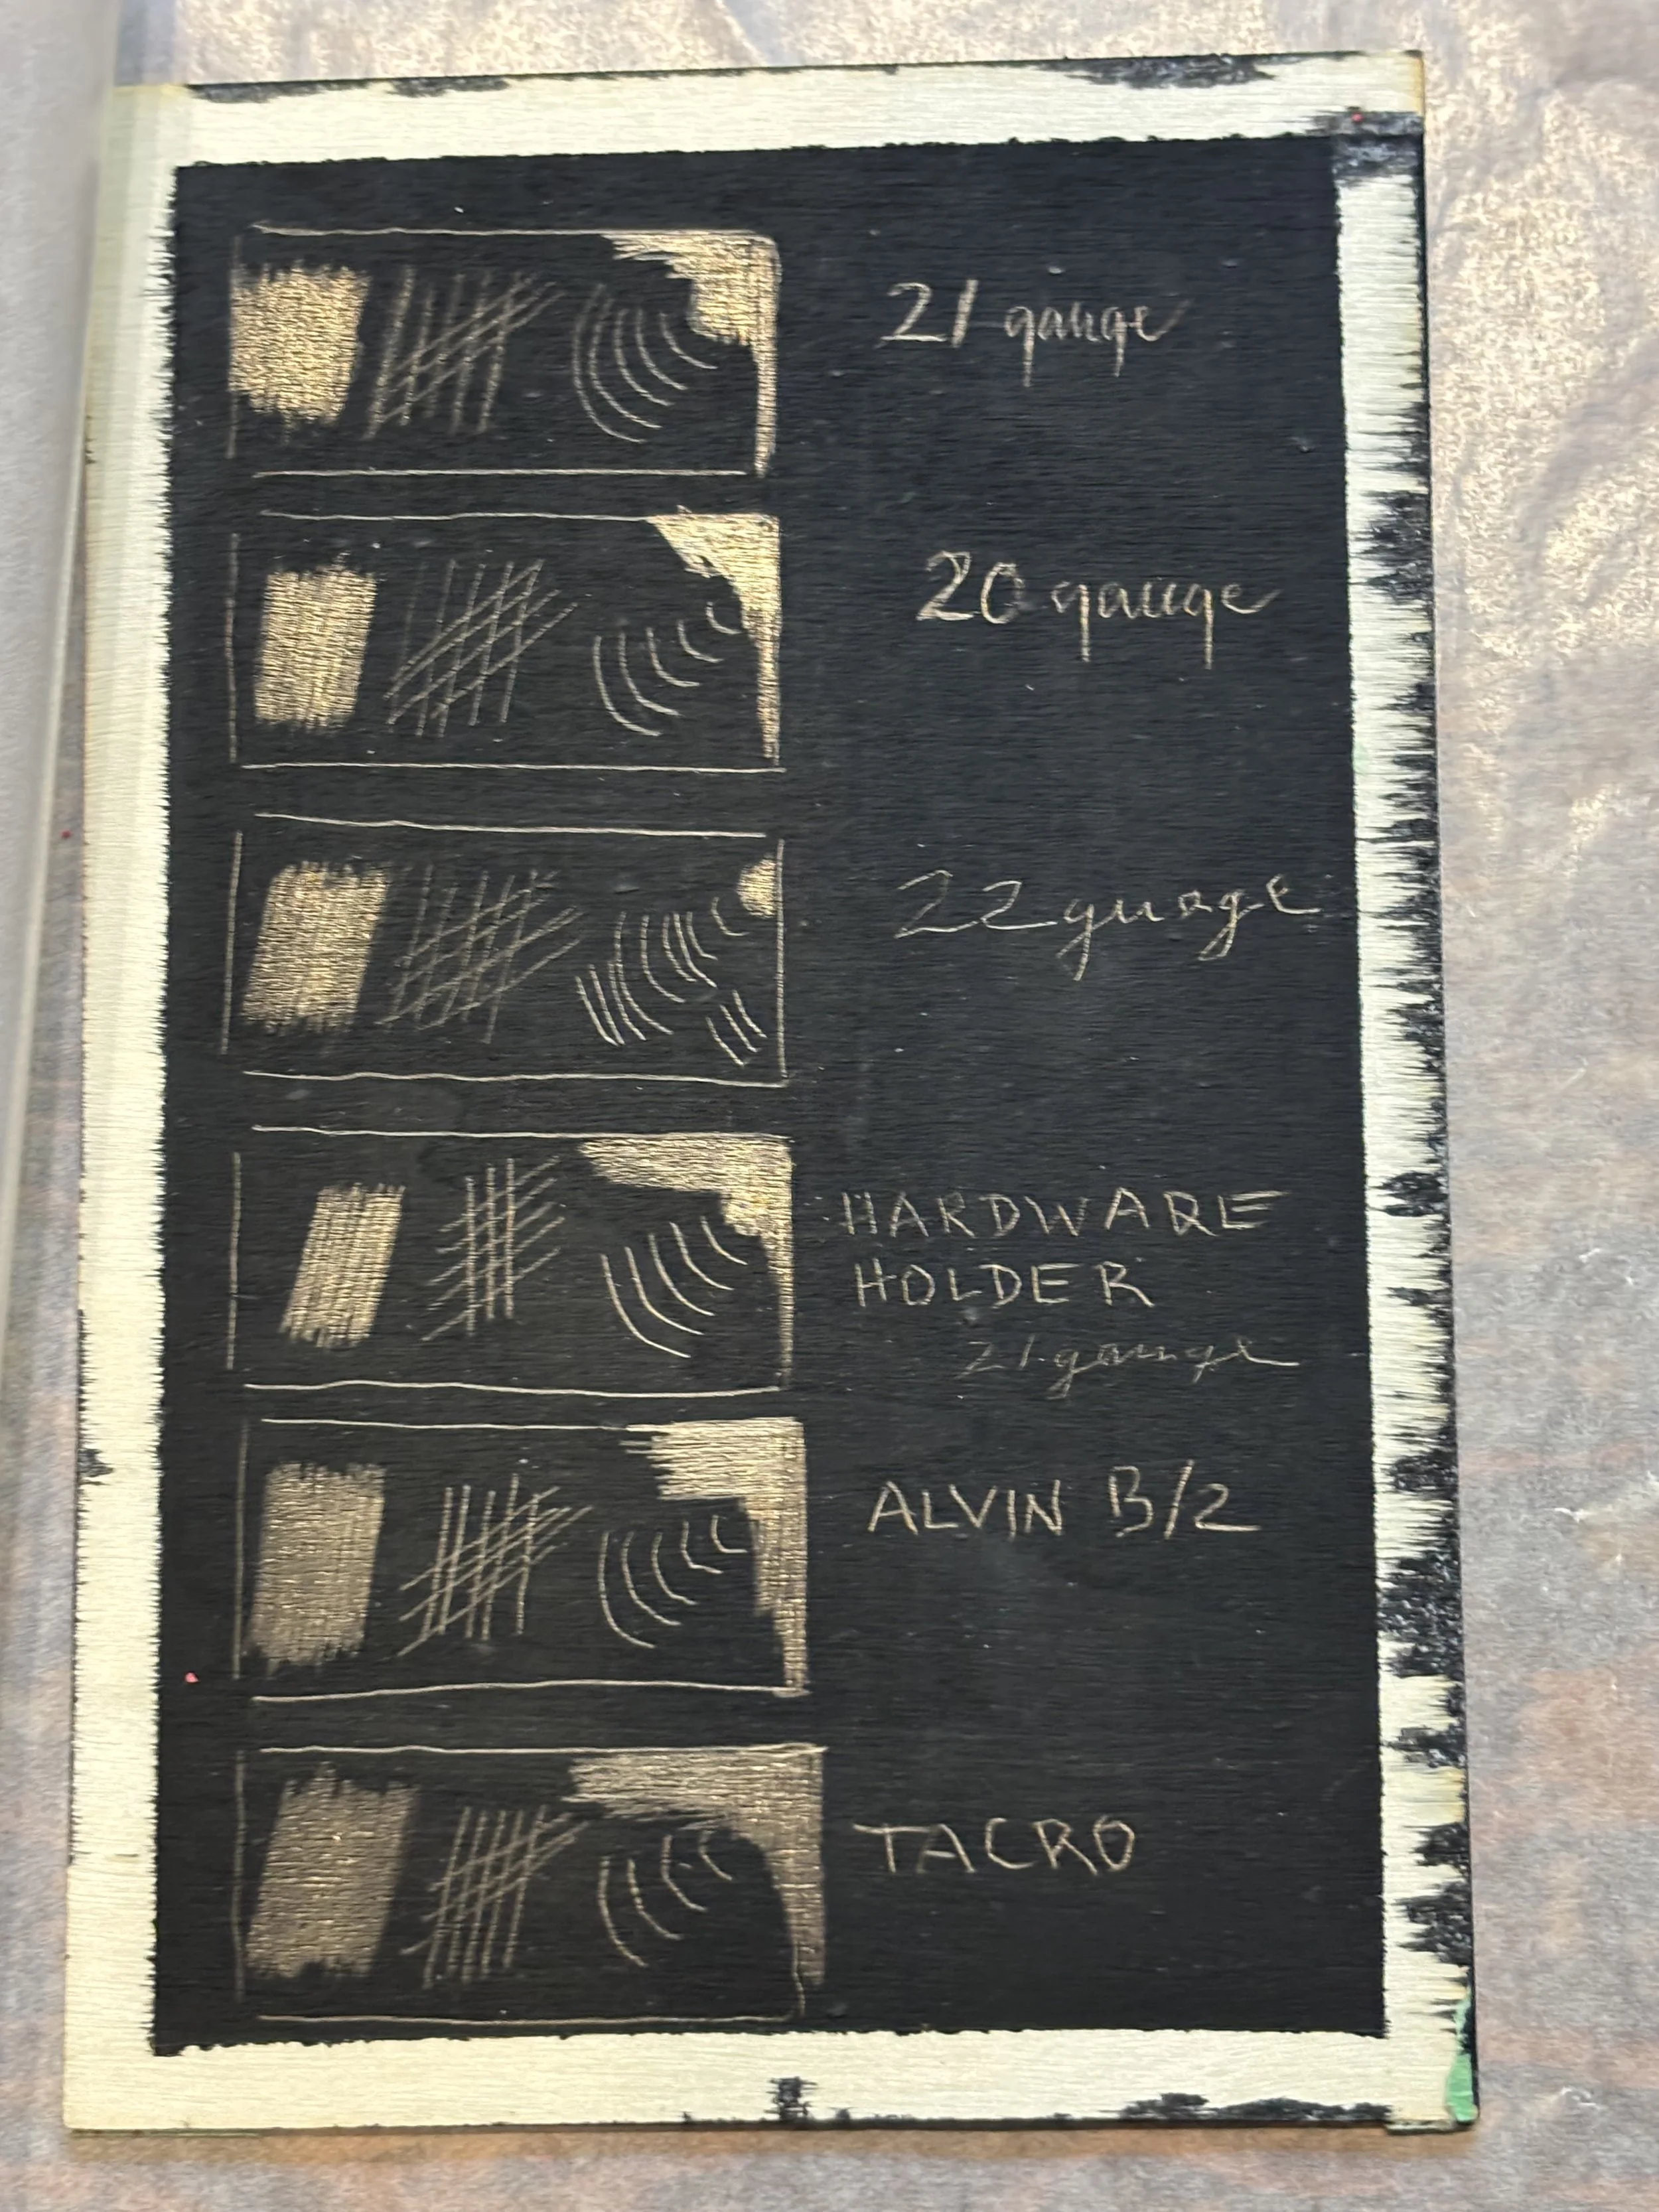 21 gauge
20 gauge
22 guage
HARDWARE
HOLDER
21 gauge
ALVIN B/2
TACRO